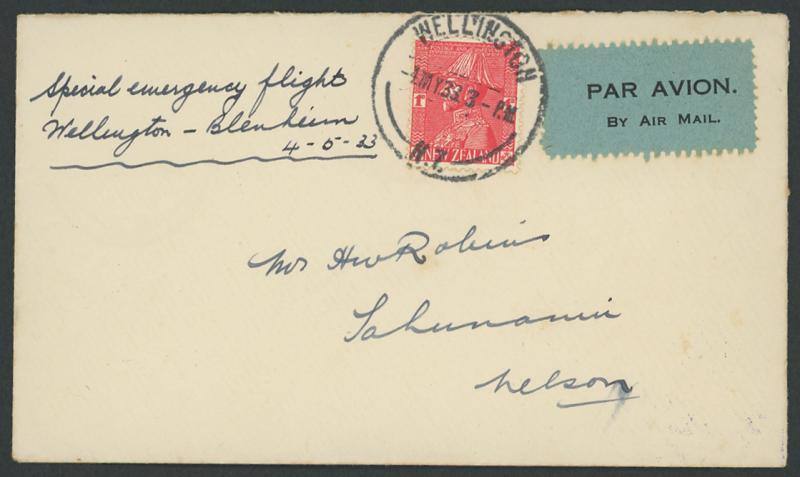 Special emergency flight
Wellington - Blenheim
4-5-33
WELLINGTON
4MY33 3-PM
N.Z.
NEW ZEALAND
PAR AVION.
BY AIR MAIL.
Mr HW Robins
Tahunanui
Nelson